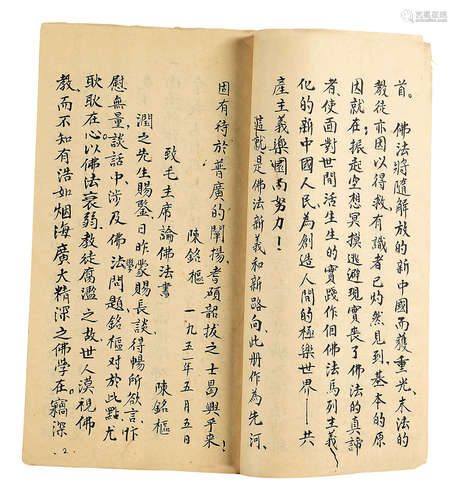 首。佛法將隨解放的新中國而獲重光,末法的
教徒亦因以得救有識者已灼然見到,基本的原
因就在振起空想冥摸逃避現實喪了佛法的真諦
者,使面對世間活生生的實踐作個佛法馬列主義
化的新中國人民,為創造人間的極樂世界——共
產主義樂園而努力!
這就是佛法新義和新路向,此册作為先河,
因有待於普廣的闡揚,耆碩韶拔之士曷興乎來!
陳銘樞 一九五一年五月五日
致毛主席論佛法書
陳銘樞
潤之先生賜鑒日昨蒙賜長談,得暢所欲言,忭
慰無量,談話中涉及佛法學問題,銘樞對於此點,尤
耿耿在心。以佛法衰弱,教徒腐濫之故世人漠視佛
教,而不知有浩如烟海廣大精深之佛學在。竊深
2